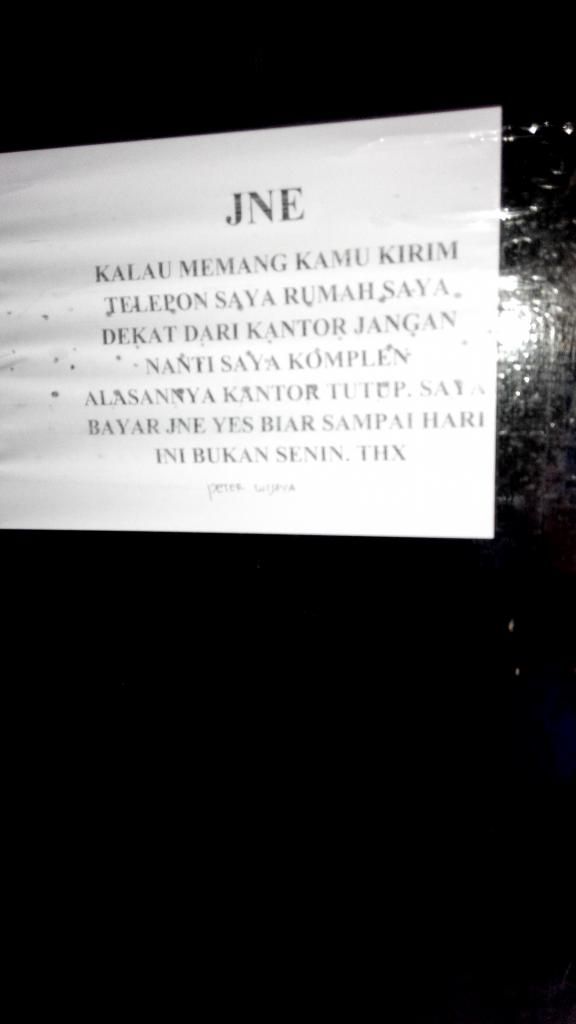 JNE
KALAU MEMANG KAMU KIRIM
TELEPON SAYA RUMAH SAYA
DEKAT DARI KANTOR JANGAN
NANTI SAYA KOMPLEN
ALASANNYA KANTOR TUTUP. SAYA
BAYAR JNE YES BIAR SAMPAI HARI
INI BUKAN SENIN. THX
PETER WIJAYA